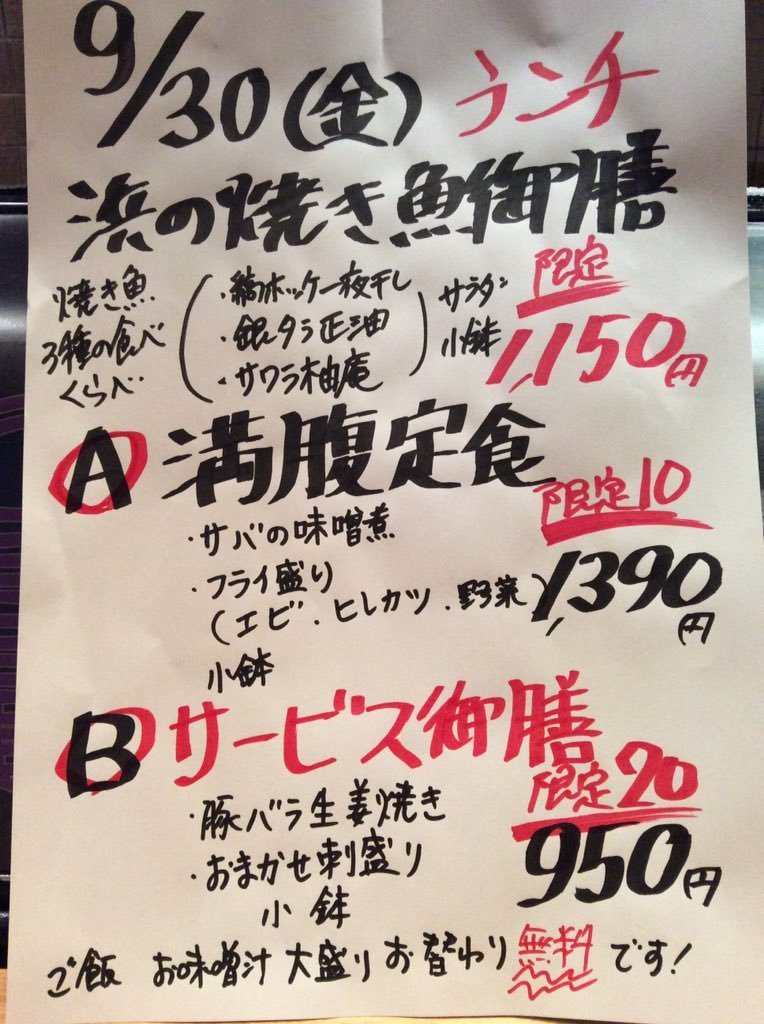 9/30(金) ランチ
浜の焼き魚御膳
焼き魚
3種の食べ
くらべ
(・縞ホッケ一夜干し
・銀タラ正油
・サワラ柚庵)
サラダ
小鉢
限定
1,150円
A 満腹定食
限定10
・サバの味噌煮
・フライ盛り
(エビ・ヒレカツ・野菜)
1,390円
小鉢
B サービス御膳
限定20
・豚バラ生姜焼き
・おまかせ刺盛り
950円
小鉢
ご飯 お味噌汁 大盛り お替わり 無料です!